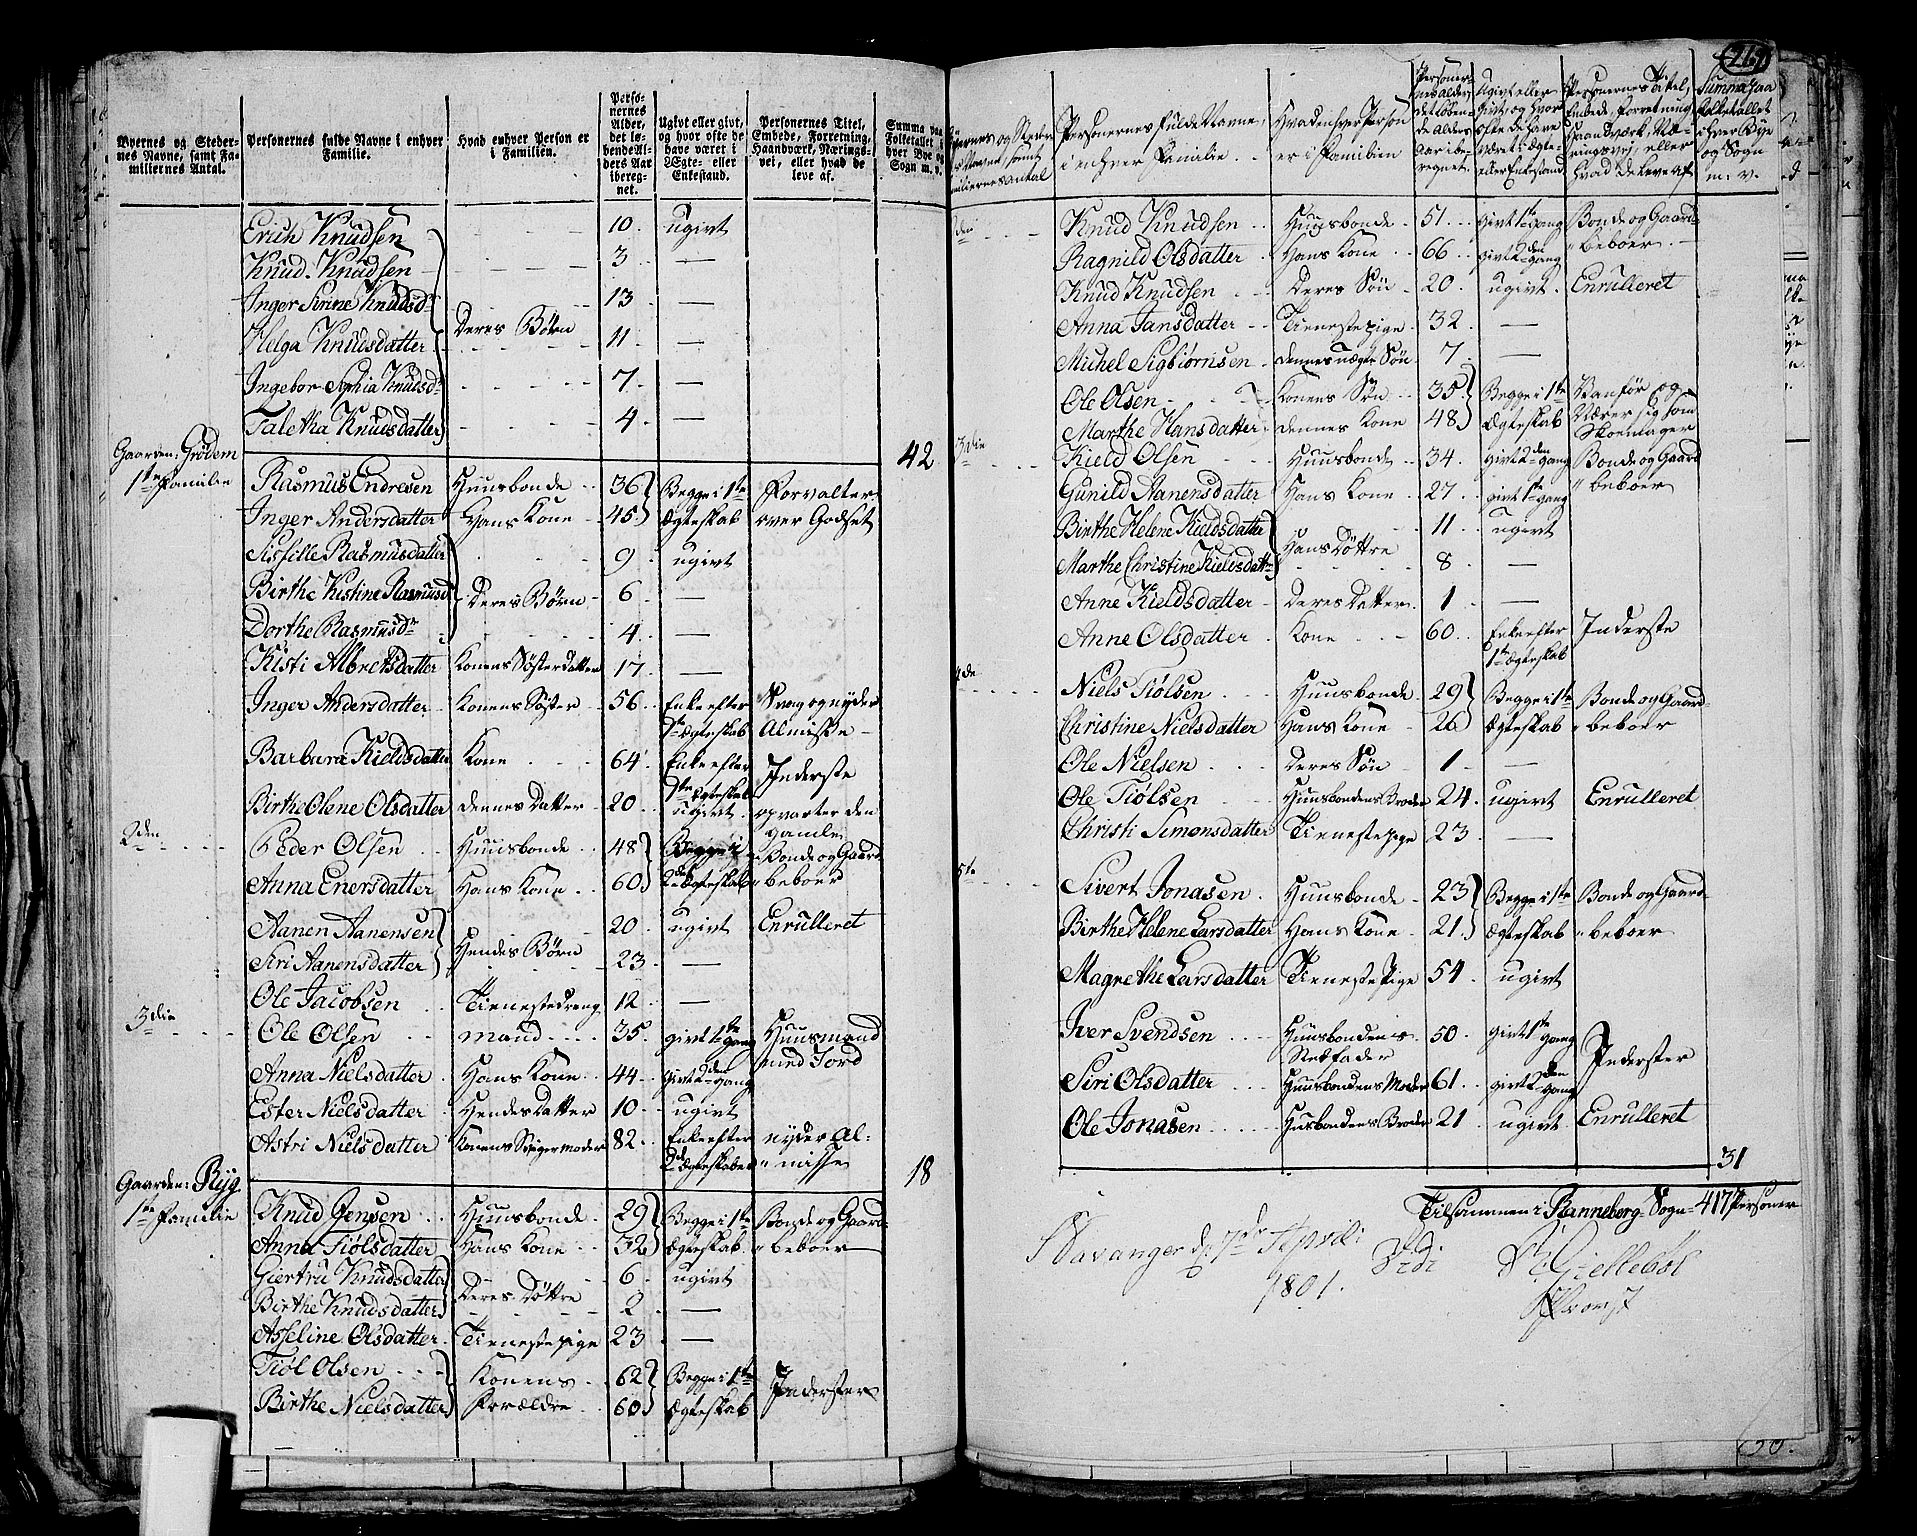 Byernes og Stedernes Navne, samt Familiernes Antal.
Personernes fulde Navne i enhver Familie.
Hvad enhver Person er i Familien.
Personernes Alder, det løbende Alders Aar iberegnet.
Ugivt eller givt, og hvor ofte de have været i Ægte- eller Enkestand.
Personernes Titel, Embede, Forretning, Haandværk, Næringsvei, eller hvad de leve af.
Summa paa Folketallet i hver Bye og Sogn m. v.
Erich Knudsen 10. ugivt
Knud Knudsen 3 —
Inger Sirine Knudsdr 13 —
Helga Knudsdatter Deres Børn 11 —
Ingebor Sophia Knudsdr 7 —
Taletha Knudsdatter 4 —
42
Gaarden: Grødem
1ste Familie Rasmus Endresen Huusbonde 36 Begge i 1ste Forvalter
Inger Andersdatter Hans Kone 45 Ægteskab over Godset
Sissille Rasmusdatter 9 ugivt
Birthe Kistine Rasmusd Deres Børn 6 —
Dorthe Rasmusdr 4 —
Kisti Albretsdatter Konens Søster Datter 17 —
Inger Andersdatter Konens Søster 56 Enke efter Svag og nyder
1ste Ægteskab Almisse
Barbara Kieldsdatter Kone 64 Enke efter Inderste
1ste Ægteskab
Birthe Olene Olsdatter dennes Datter 20 ugivt opvarter den
Gamle
2den Peder Olsen Huusbonde 48 Begge i Bonde og Gaard
Anna Enersdatter Hans Kone 60 2det Ægteskab beboer
Aanen Aanensen 20 ugivt Enrulleret
Siri Aanensdatter Hendes Børn 23 —
Ole Jacobsen Tienestedreng 12 —
3die Ole Olsen mand 35 givt 1ste gang Huusmand
Anna Nielsdatter Hans Kone 44 givt 2den gang med Jord
Ester Nielsdatter Hendes Datter 10 ugivt
Astri Nielsdatter Konens Svigermoder 82 Enke efter nyder Al-
2det Ægteskab misse
18
Gaarden: Ryg
1ste Familie Knud Jensen Huusbonde 29 Begge i 1ste Bonde og Gaard
Anna Tiølsdatter Hans Kone 32 Ægteskab beboer
Giertru Knudsdatter 6 ugivt
Birthe Knudsdatter Deres Døttre 2 —
Asseline Olsdatter Tienestepige 23 —
Tiøl Olsen Konens 62 Begge i 1ste Inderster
Birthe Nielsdatter Forældre 60 Ægteskab
Personernes fulde Navne, i enhver Familie
Hvad enhver Person er i Familien
Personernes Alder, det løbende Alders Aar iberegnet.
Ugivt eller Givt, og hvor ofte de have været i Ægte- eller Enkestand
Personernes Titel, Embede, Forretning, Haandværk, Næringsvej, eller hvad de leve af
Summa paa Folketallet i hver Bye og Sogn m. v.
2den Knud Knudsen Huusbonde 51 givt 1ste gang Bonde og Gaard
Ragnild Olsdatter Hans Kone 66 givt 2den gang beboer
Knud Knudsen Deres Søn 20 ugivt Enrulleret
Anna Jansdatter Tienestepige 32 —
Michel Sigbiørnsen dennes uægte Søn 7 —
Ole Olsen Konens Søn 35 Begge i 1ste Vanfør og
Marthe Hansdatter dennes Kone 48 Ægteskab Nærer sig som
Skoemager
3die Kield Olsen Huusbonde 34 givt 2den gang Bonde og Gaard
Gunild Aanensdatter Hans Kone 27 givt 1ste gang beboer
Birthe Helene Kieldsdatter 11 ugivt
Marthe Christine Kieldsdattr Hans Døttre 8 —
Anne Kieldsdatter Deres Datter 1 —
Anne Olsdatter Kone 60 Enke efter Inderste
1ste Ægteskab
4de Niels Tiølsen Huusbonde 29 Begge i 1ste Bonde og Gaard
Christine Nielsdatter Hans Kone 26 Ægteskab beboer
Ole Nielsen Deres Søn 1 —
Ole Tiølsen Huusbondens Broder 24 ugivt Enrulleret
Christi Simonsdatter Tienestepige 23 —
5te Sivert Jonasen Huusbonde 23 Begge i 1ste Bonde og Gaard
Birthe Helene Larsdatter Hans Kone 21 Ægteskab beboer
Magrethe Larsdatter Tieneste Pige 54 ugivt
Iver Svendsen Huusbondens 50 givt 1ste gang
Stedfader Inderster
Siri Olsdatter Huusbondens Moder 61 givt 2den gang
Ole Jonasen Husbondens Broder 21 ugivt Enrulleret
31
Tilsammen i Ranneberg Sogn 417 Personer
Stavanger d. 7de April
1801.
Vidi